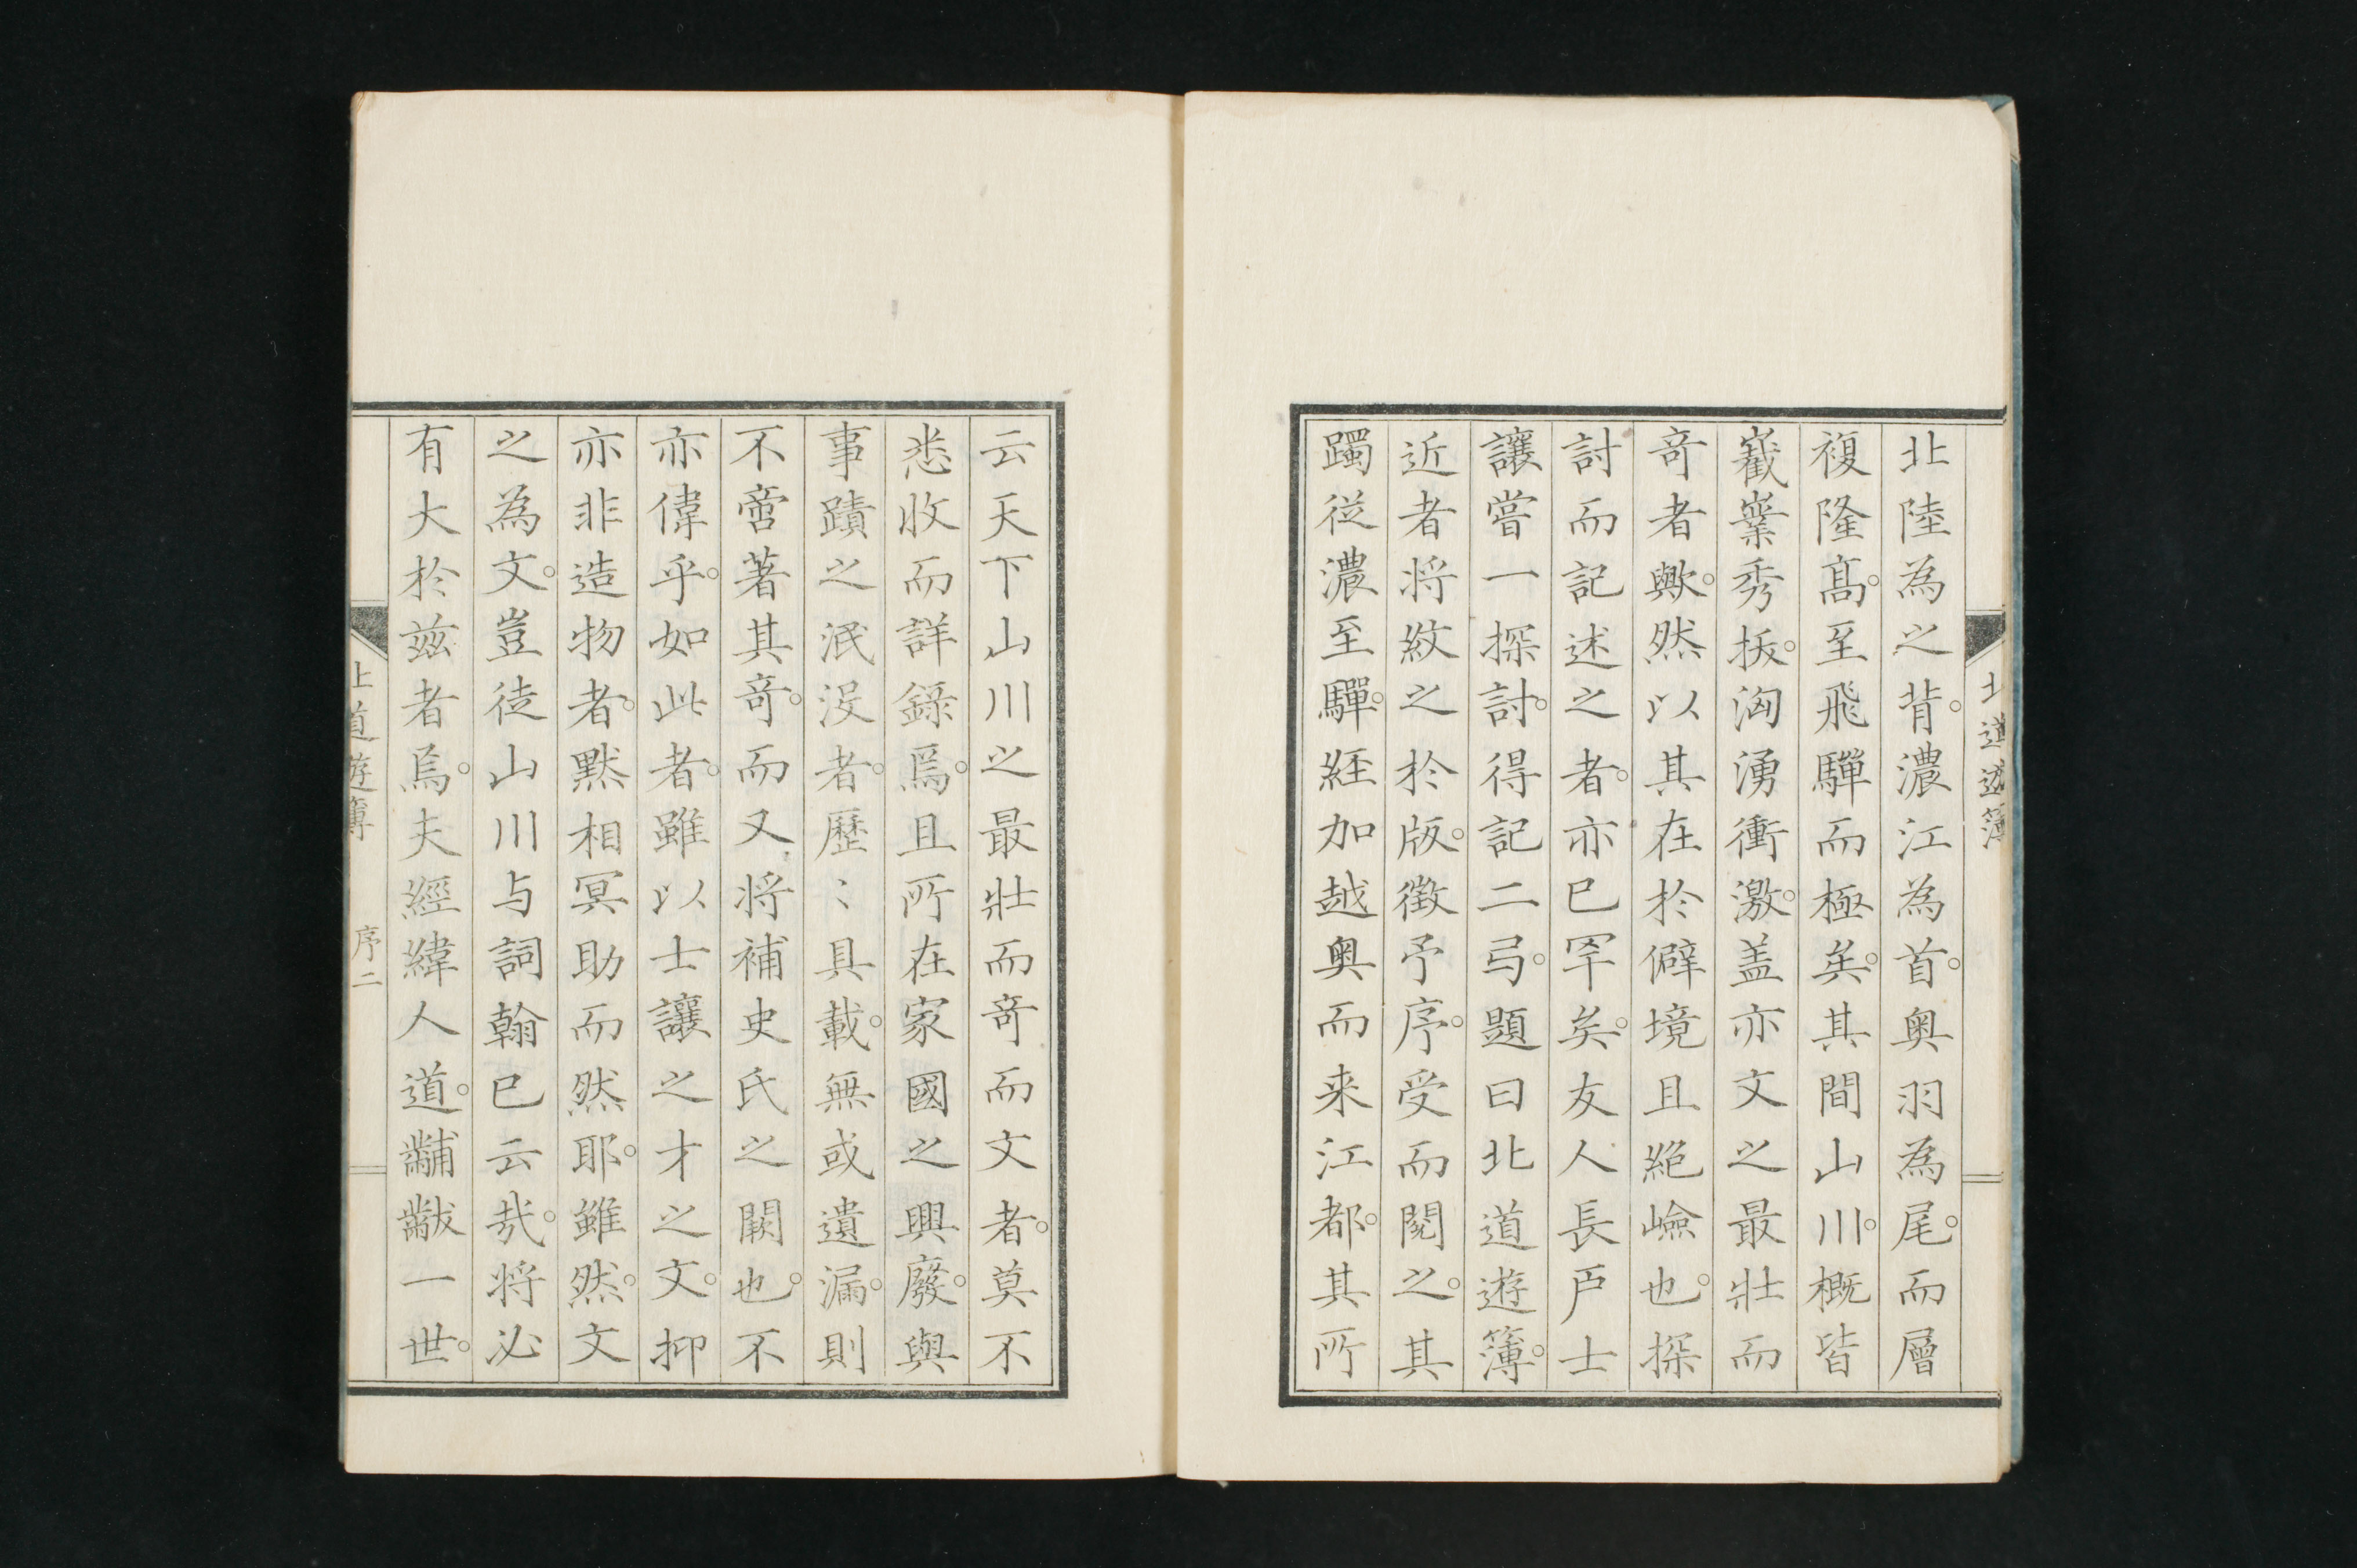 北陸為之背。濃江為首。奥羽為尾。而層
複隆髙。至飛驒而極矣。其間山川。概皆
巀嶪秀拔。洶湧衝激。盖亦文之最壯而
竒者歟。然以其在於僻境且絕嶮也。探
討而記述之者。亦已罕矣。友人長戸士
讓嘗一探討。得記二弓。題曰北道遊簿。
近者将紋之於版。徵予序。受而閱之。其
躅從濃至驒。経加越奥而来江都。其所
云天下山川之最壯而竒而文者。莫不
悉收而詳錄焉。且所在家國之興廢。與
事蹟之泯沒者。歷〻具載。無或遺漏。則
不啻著其竒。而又将補史氏之闕也。不
亦偉乎。如此者。雖以士讓之才之文。抑
亦非造物者。黙相冥助而然耶。雖然。文
之為文。豈徒山川与詞翰已云㢤。将必
有大於兹者焉。夫經緯人道。黼黻一世。
北道遊簿
北道遊簿 序二